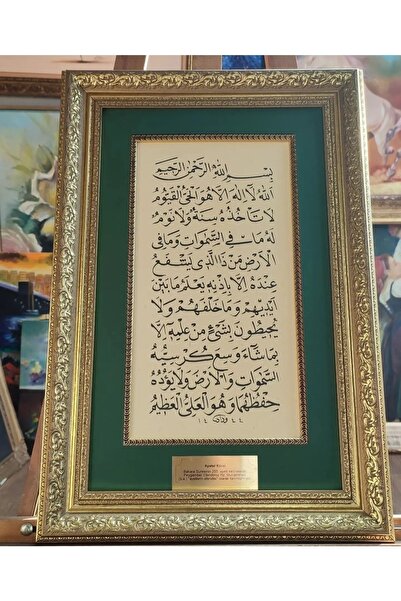 بِسْمِ اللّٰهِ الرَّحْمٰنِ الرَّحِيمِ
اَللّٰهُ لَا اِلٰهَ اِلَّا هُوَ الْحَيُّ الْقَيُّومُ
لَا تَأْخُذُهُ سِنَةٌ وَلَا نَوْمٌ
لَهُ مَا فِي السَّمٰوَاتِ وَمَا فِي
الْاَرْضِ مَنْ ذَا الَّذِي يَشْفَعُ
عِنْدَهُ اِلَّا بِاِذْنِهِ يَعْلَمُ مَا بَيْنَ
اَيْدِيهِمْ وَمَا خَلْفَهُمْ وَلَا
يُحِيطُونَ بِشَيْءٍ مِنْ عِلْمِهِ اِلَّا
بِمَا شَاءَ وَسِعَ كُرْسِيُّهُ
السَّمٰوَاتِ وَالْاَرْضَ وَلَا يَؤُدُهُ
حِفْظُهُمَا وَهُوَ الْعَلِيُّ الْعَظِيمُ
Bakara Suresinin 255. ayeti